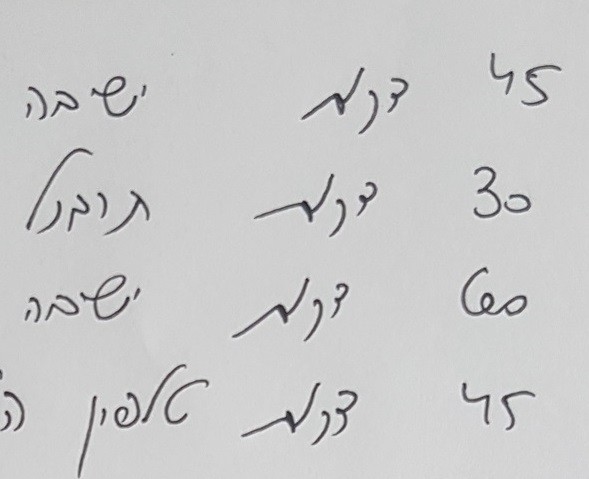 45 דקות ישיבה
30 דקות תרגול
60 דקות ישיבה
45 דקות טלפון